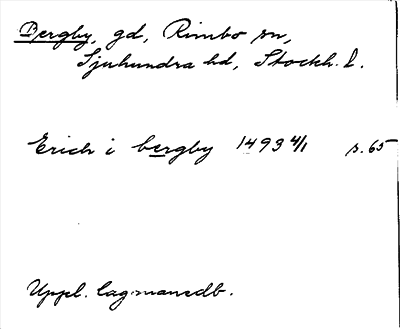 Bergby, gd, Rimbo sn,
Sjuhundra hd, Stockh. l.
Erich i bergby 1493 4/1 s. 65
Uppl. lagmansdb.